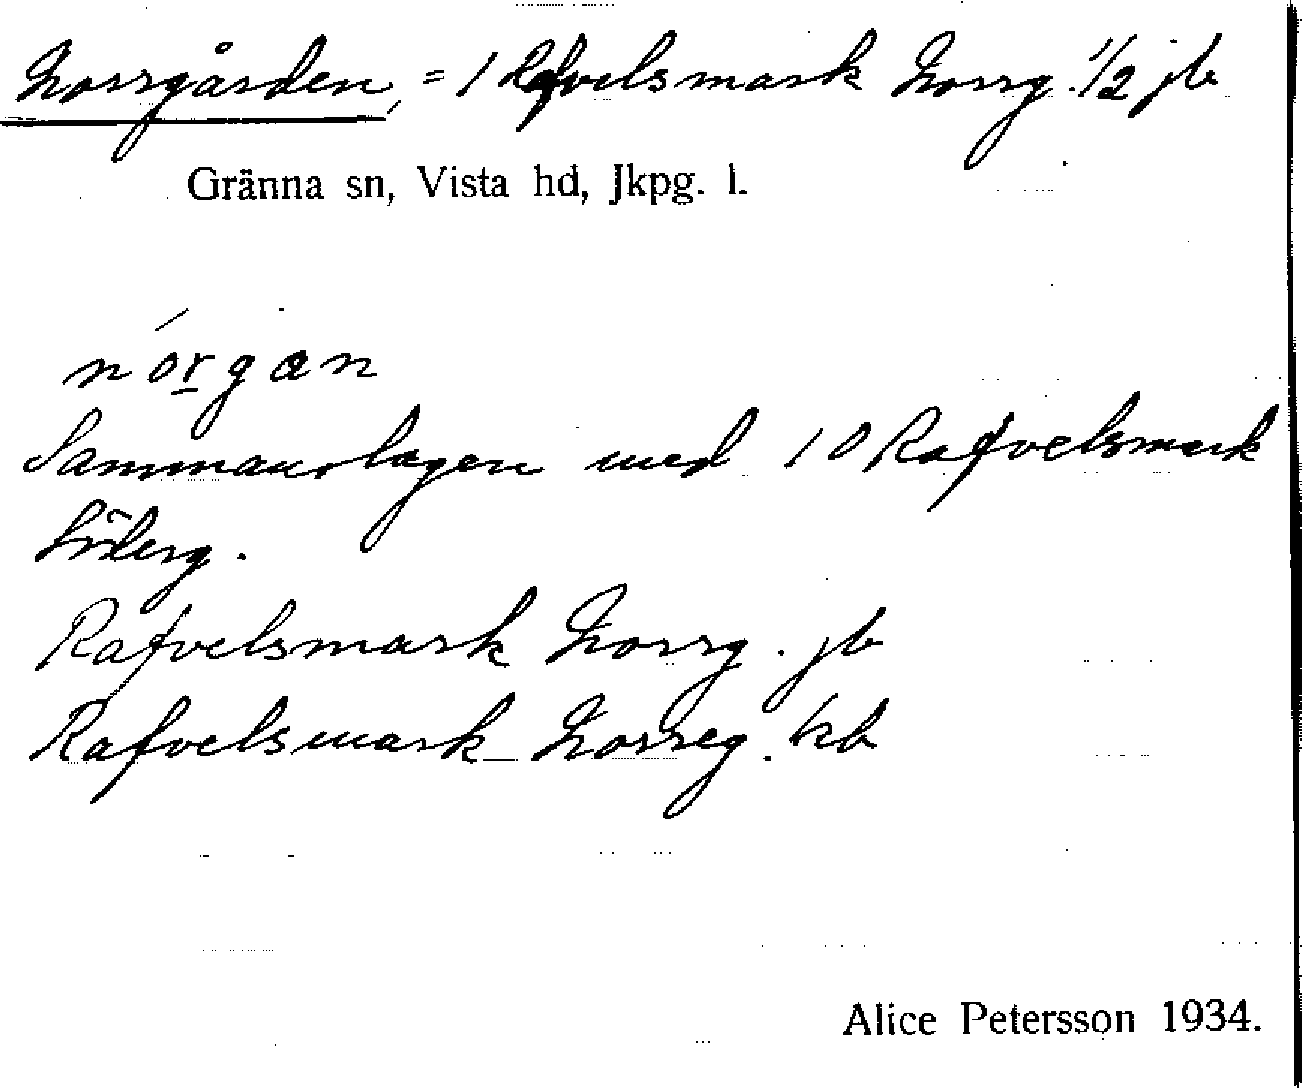 Norrgården, = 1 Rafvelsmark Norrg. 1/2 jb
Gränna sn, Vista hd, Jkpg. l.
nórgan
Sammanslagen med 10 Rafvelsmark
Söderg.
Rafvelsmark Norrg. jb
Rafvelsmark Norreg. kb
Alice Petersson 1934.